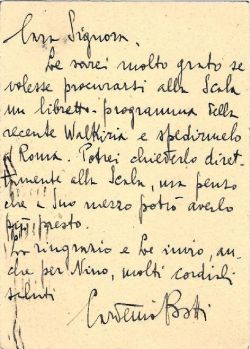 Cara Signora,
Le sarei molto grato se
volesse procurarsi alla Scala
un libretto-programma della
recente Walkiria e spedirmelo
a Roma. Potrei chiederlo diret-
tamente alla Scala, ma penso
che a Suo mezzo potrò averlo
più presto.
La ringrazio e Le invio, an-
che per Nino, molti cordiali
saluti